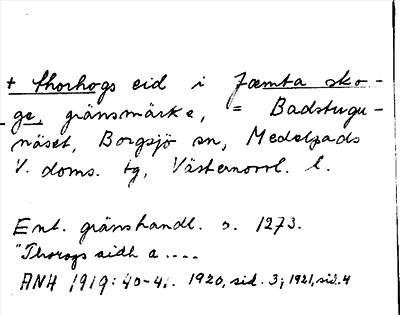 + Thorhogs eid i Jæmta sko-
ge, gränsmärke, = Badstugu-
näset, Borgsjö sn, Medelpads
V. doms. tg, Västernorrl. l.
Enl. gränshandl. o. 1273.
"Thorogs aidh a ....
ANH 1919: 40-41. 1920, sid. 3; 1921, sid. 4